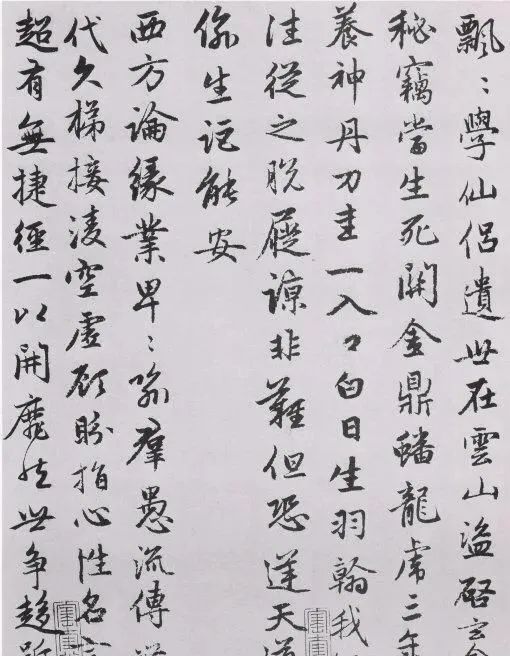 飄〻學仙侶遺世在雲山盜啓玄
秘竊當生死關金鼎蟠龍虎三年
養神丹刀圭一入口白日生羽翰我
往從之脫屣諒非難但恐逆天道
偷生詎能安
西方論緣業卑〻喻羣愚流傳
代久梯接淩空虛顧盼指心性名言
超有無捷徑一以開靡然世爭趨